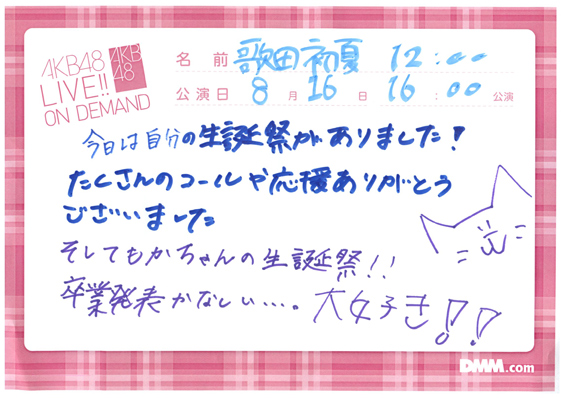 AKB48
LIVE!!
ON DEMAND
AKB
48
名前 歌田初夏 12:00
公演日 8月16日 16:00 公演
今日は自分の生誕祭がありました!
たくさんのコールや応援ありがとう
ございました
そしてもかちゃんの生誕祭!!
卒業発表かなしい…。大好き!!
DMM.com